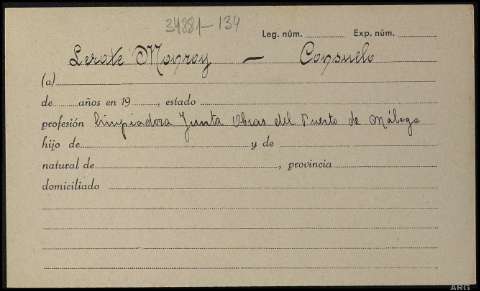 34881-134
Leg. núm. Exp. núm.
Lerate Monroy — Consuelo
(a)
de años en 19 , estado
profesión limpiadora Junta Obras del Puerto de Málaga
hijo de y de
natural de , provincia
domiciliado
ARG